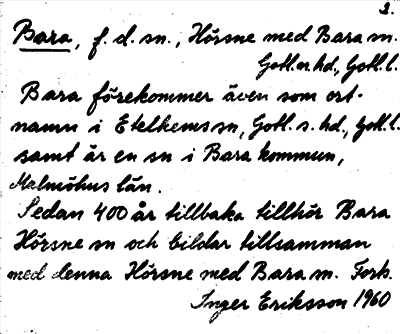 2.
Bara, f. d. sn., Hörsne med Bara sn.
Gotl. n. hd., Gotl. l.
Bara förekommer även som ort-
namn i Etelhems sn, Gotl. s. hd., Gotl. l.
samt är en sn i Bara kommun,
Malmöhus län.
Sedan 400 år tillbaka tillhör Bara
Hörsne sn och bildar tillsamman
med denna Hörsne med Bara sn. Forts.
Inger Eriksson 1960